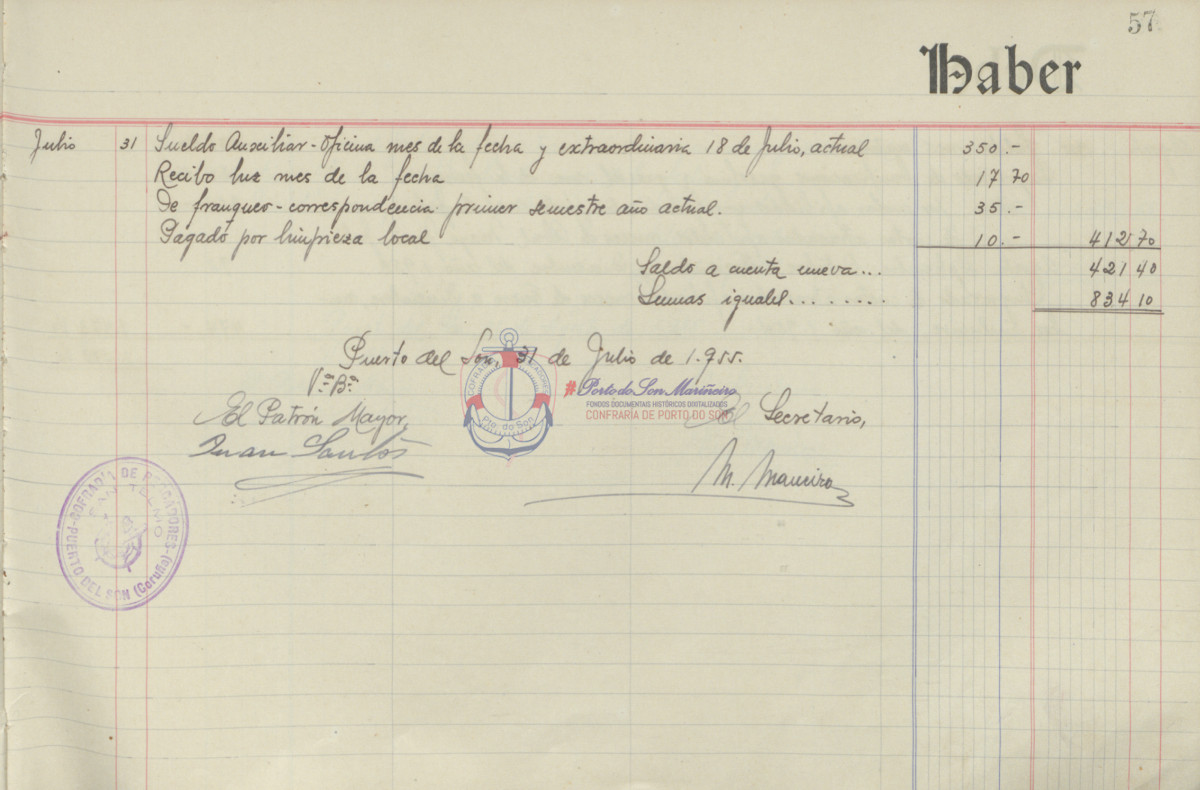 57
Haber
Julio 31 Sueldo Auxiliar-Oficina mes de la fecha y extraordinaria 18 de Julio, actual 350.-
Recibo luz mes de la fecha 17 70
De franqueo-correspondencia primer semestre año actual. 35.-
Pagado por limpieza local 10.- 412 70
Saldo a cuenta nueva... 421 40
Sumas iguales........ 834 10
Puerto del Son, 31 de Julio de 1.955.
V.º B.º
El Patrón Mayor,
Juan Santos
El Secretario,
M. Maneiro
COFRADIA DE PESCADORES-PUERTO DEL SON (Coruña)
SAN TELMO
Pto. do Son
#Porto do Son Mariñeiro
FONDOS DOCUMENTAIS HISTÓRICOS DIXITALIZADOS
CONFRARÍA DE PORTO DO SON